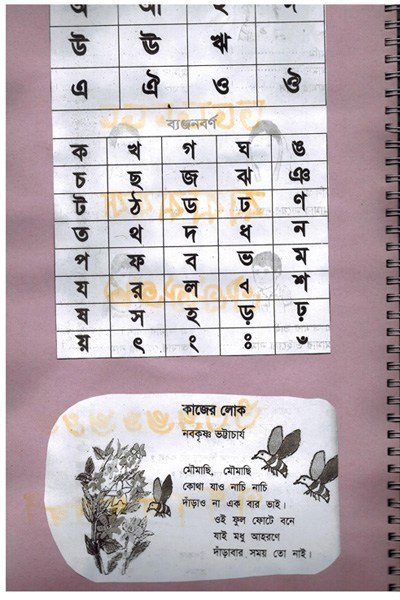 উ ঊ ঋ
এ ঐ ও ঔ
ব্যঞ্জনবর্ণ
ক খ গ ঘ ঙ
চ ছ জ ঝ ঞ
ট ঠ ড ঢ ণ
ত থ দ ধ ন
প ফ ব ভ ম
য র ল ব শ
ষ স হ ড় ঢ়
য় ৎ ং ঃ ঁ
কাজের লোক
নবকৃষ্ণ ভট্টাচার্য
মৌমাছি, মৌমাছি
কোথা যাও নাচি নাচি
দাঁড়াও না এক বার ভাই।
ওই ফুল ফোটে বনে
যাই মধু আহরণে
দাঁড়াবার সময় তো নাই।